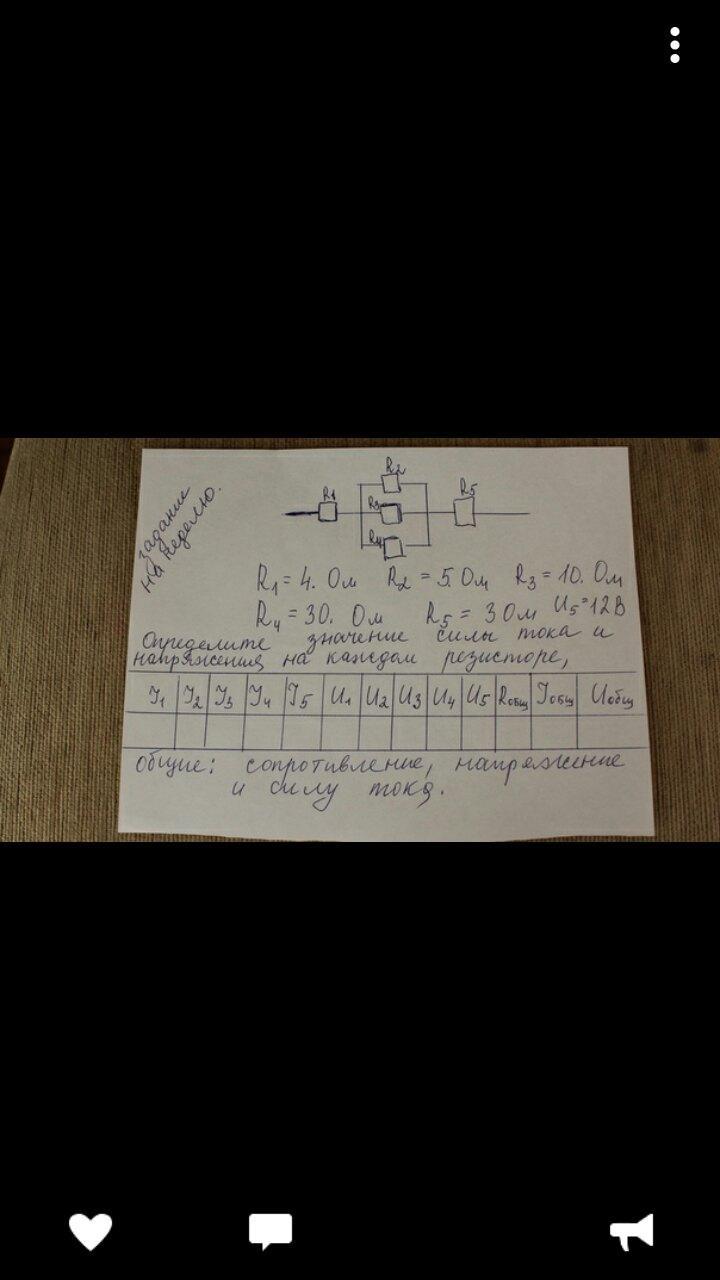 задание
на неделю.
R2
R1 R3 R5
R4
R1 = 4. Ом R2 = 5 Ом R3 = 10. Ом
R4 = 30. Ом R5 = 3 Ом U5 = 12 В
Определите значение силы тока и
напряжения на каждом резисторе,
I1 I2 I3 I4 I5 U1 U2 U3 U4 U5 Rобщ Iобщ Uобщ
общие: сопротивление, напряжение
и силу тока.